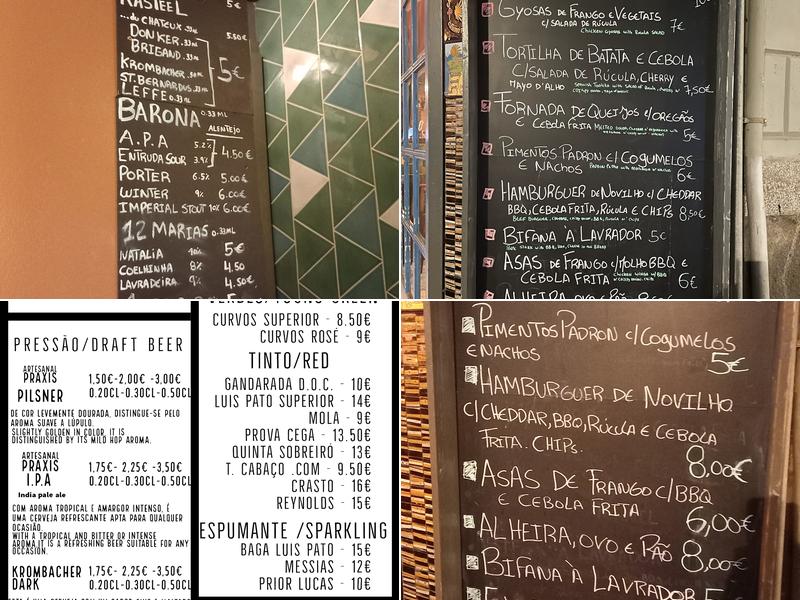 KASTEEL 5€
...du CHATEUX .33ML
DONKER .33ML 5.50€
BRIGAND .33ML
KROMBACHER .50ML 5€
ST. BERNARDUS .33ML
LEFFE 0.33ML
BARONA 0.33ML
ALENTEJO
A.P.A 5.2%
ENTRUDA SOUR 3.9% 4.50€
PORTER 6.5% 5.00€
WINTER 9% 6.00€
IMPERIAL STOUT 10% 6.00€
12 MARIAS 0.33ML
NATALIA 10% 5€
COELHINHA 8% 4.50
LAVRADEIRA 9% 4.50€
GYOSAS DE FRANGO E VEGETAIS
C/SALADA DE RÚCULA 7€
TORTILHA DE BATATA E CEBOLA
C/SALADA DE RÚCULA, CHERRY E
MAYO D'ALHO 7,50€
FORNADA DE QUEIJOS C/OREGÃOS
E CEBOLA FRITA 6€
PIMENTOS PADRON C/COGUMELOS
E NACHOS 6€
HAMBURGUER DE NOVILHO C/CHEDDAR
BBQ, CEBOLA FRITA, RÚCULA E CHIPS 8,50€
BIFANA À LAVRADOR 5€
ASAS DE FRANGO C/MOLHO BBQ E
CEBOLA FRITA 6€
ALHEIRA, OVO E PÃO 8,00€
PRESSÃO/DRAFT BEER
ARTESANAL
PRAXIS 1,50€-2,00€ -3,00€
PILSNER 0.20CL-0.30CL-0.50CL
DE COR LEVEMENTE DOURADA, DISTINGUE-SE PELO
AROMA SUAVE A LÚPULO.
SLIGHTLY GOLDEN IN COLOR, IT IS
DISTINGUISHED BY ITS MILD HOP AROMA.
ARTESANAL
PRAXIS 1,75€- 2,25€ -3,50€
I.P.A 0.20CL-0.30CL-0.50CL
India pale ale
COM AROMA TROPICAL E AMARGOR INTENSO, É
UMA CERVEJA REFRESCANTE APTA PARA QUALQUER
OCASIÃO.
WITH A TROPICAL AND BITTER OR INTENSE
AROMA,IT IS A REFRESHING BEER SUITABLE FOR ANY
OCCASION.
KROMBACHER 1,75€- 2,25€ -3,50€
DARK 0.20CL-0.30CL-0.50CL
VERDES/YOUNG GREEN
CURVOS SUPERIOR - 8.50€
CURVOS ROSÉ - 9€
TINTO/RED
GANDARADA D.O.C. - 10€
LUIS PATO SUPERIOR - 14€
MOLA - 9€
PROVA CEGA - 13.50€
QUINTA SOBREIRÓ - 13€
T. CABAÇO .COM - 9.50€
CRASTO - 16€
REYNOLDS - 15€
ESPUMANTE /SPARKLING
BAGA LUIS PATO - 15€
MESSIAS - 12€
PRIOR LUCAS - 10€
PIMENTOS PADRON C/COGUMELOS
E NACHOS 5€
HAMBURGUER DE NOVILHO
C/CHEDDAR, BBQ, RÚCULA E CEBOLA
FRITA. CHIPS. 8,00€
ASAS DE FRANGO C/BBQ
E CEBOLA FRITA 6,00€
ALHEIRA, OVO E PÃO 8,00€
BIFANA À LAVRADOR 5